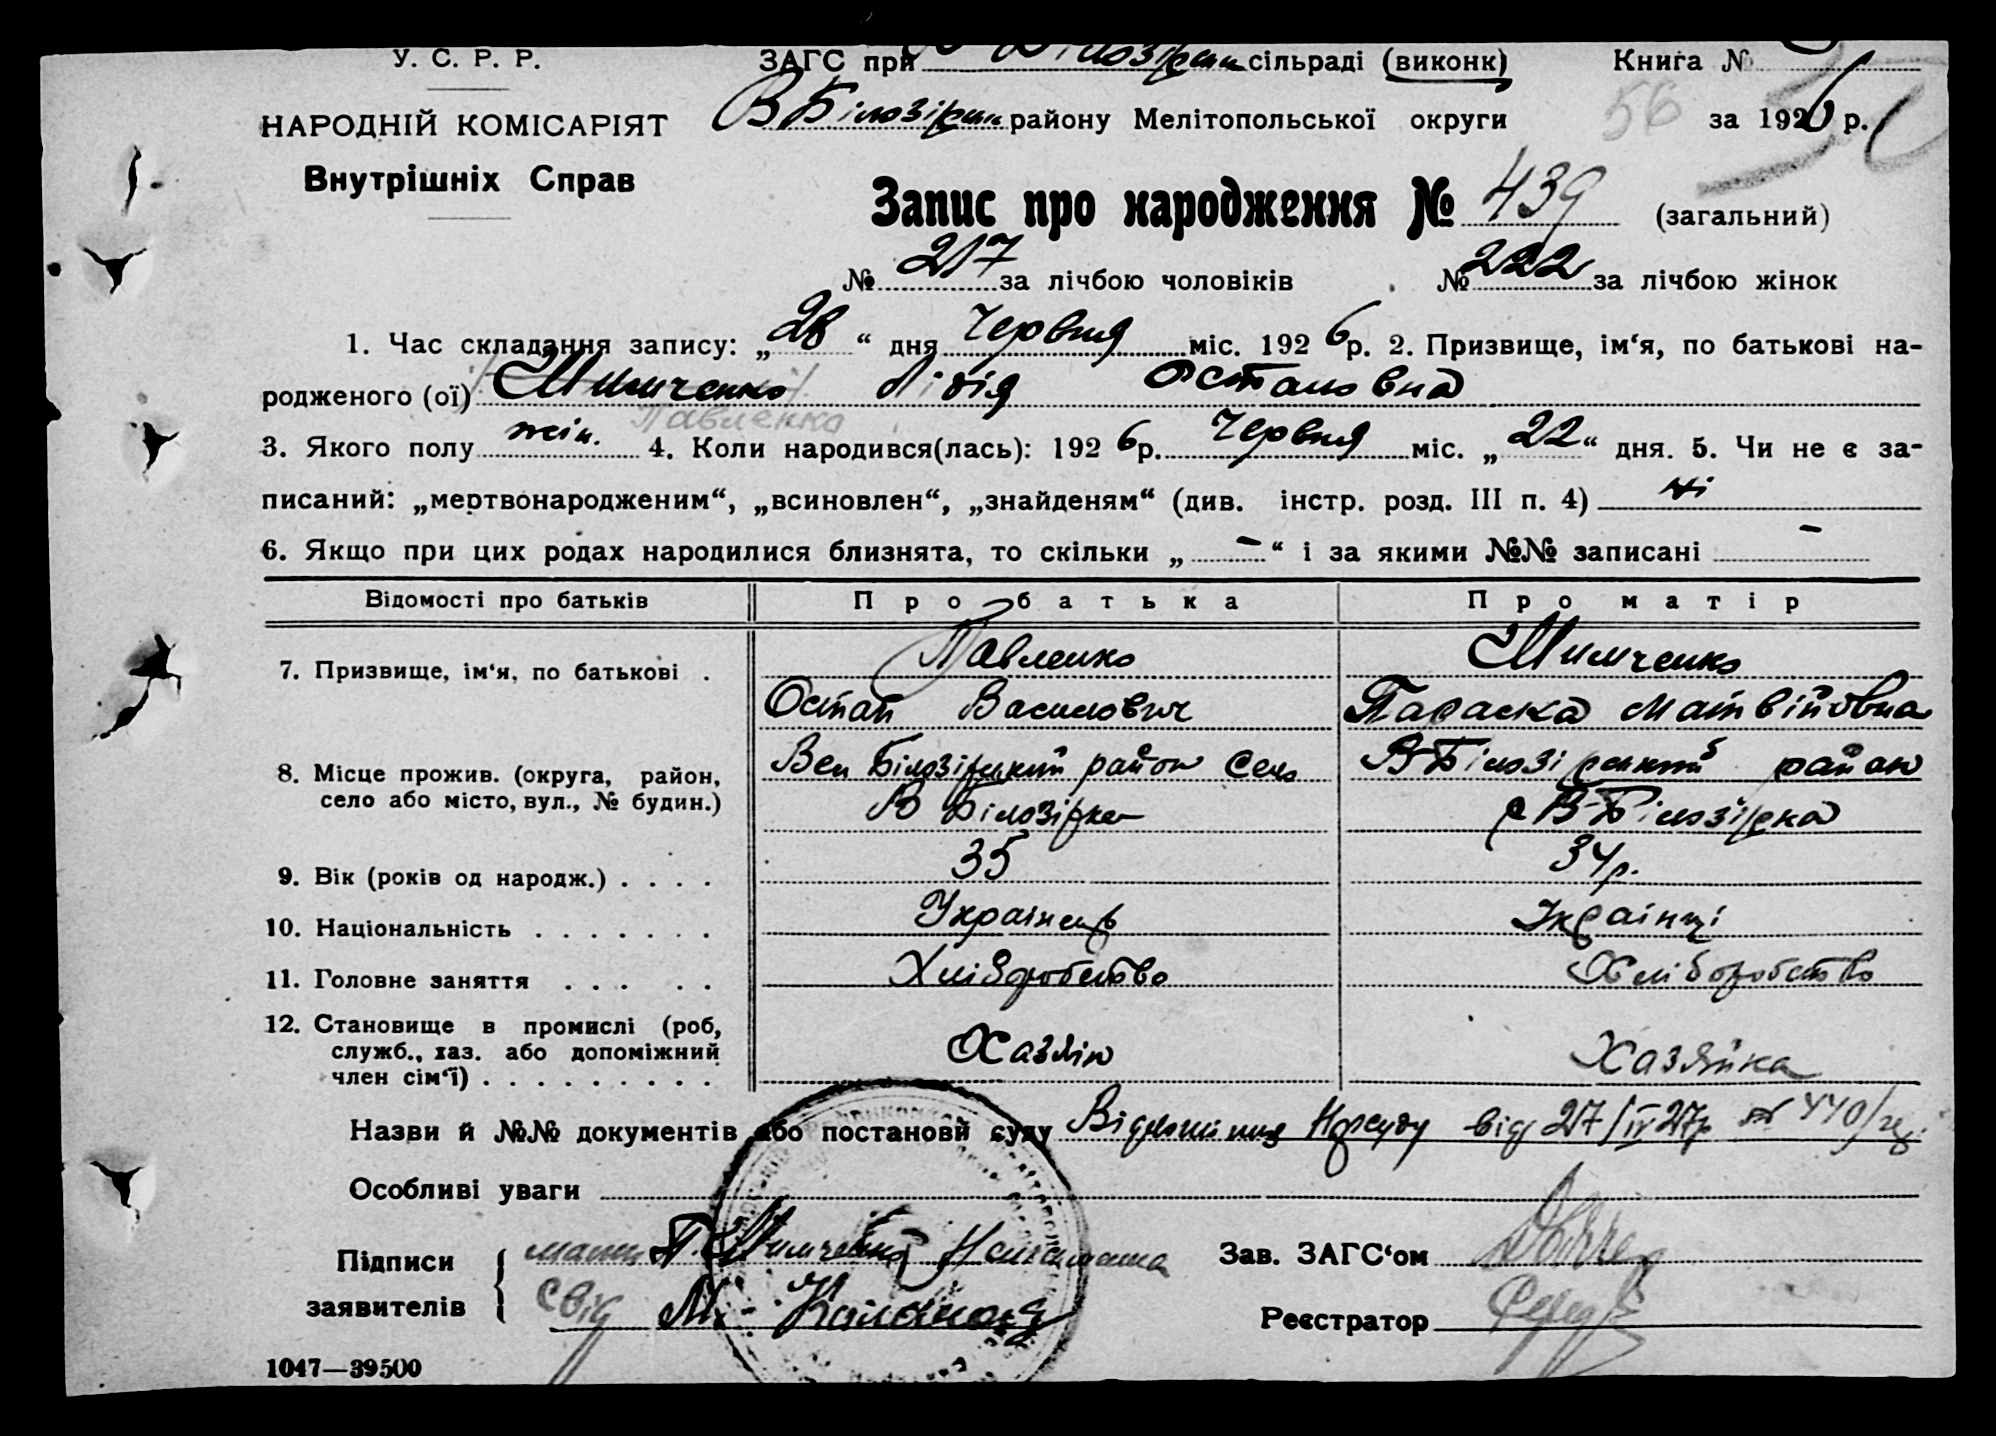 У. С. Р. Р.
ЗАГС при В Білозірськ сільраді (виконк)
Книга №
НАРОДНІЙ КОМІСАРІЯТ
В Білозірськ району Мелітопольської округи
56
50
за 1926 р.
Внутрішніх Справ
Запис про народження № 439 (загальний)
№ 217 за лічбою чоловіків № 222 за лічбою жінок
1. Час складання запису: „28“ дня Червня міс. 1926 р. 2. Призвище, ім‘я, по батькові на-
родженого (ої) Климченко Лідія Остаповна
Павленко
3. Якого полу жін. 4. Коли народився(лась): 1926 р. Червня міс. „22“ дня. 5. Чи не є за-
писаний: „мертвонародженим“, „всиновлен“, „знайденям“ (див. інстр. розд. III п. 4) ні
6. Якщо при цих родах народилися близнята, то скільки „ – “ і за якими №№ записані –
Відомості про батьків Про батька Про матір
7. Призвище, ім‘я, по батькові . Павленко Климченко
Остап Василович Параска Матвійовна
8. Місце прожив. (округа, район, Вел Білозірський район село В-Білозірський район
село або місто, вул., № будин.) В Білозірка с В-Білозірка
9. Вік (років од народж.) . . . . 35 34 р.
10. Національність . . . . . . . Українець Українці
11. Головне заняття . . . . . Хліборобство Хліборобство
12. Становище в промислі (роб,
служб., хаз. або допоміжний Хазяїн Хазяйка
член сім‘ї) . . . . . . . . .
Назви й №№ документів або постанови суду Відношення Нарсуду від 27/IV 27р № 440/
Особливі уваги
Підписи мати П. Климченко Неписьменна Зав. ЗАГС‘ом
заявителів свід М. Реєстратор
1047—39500